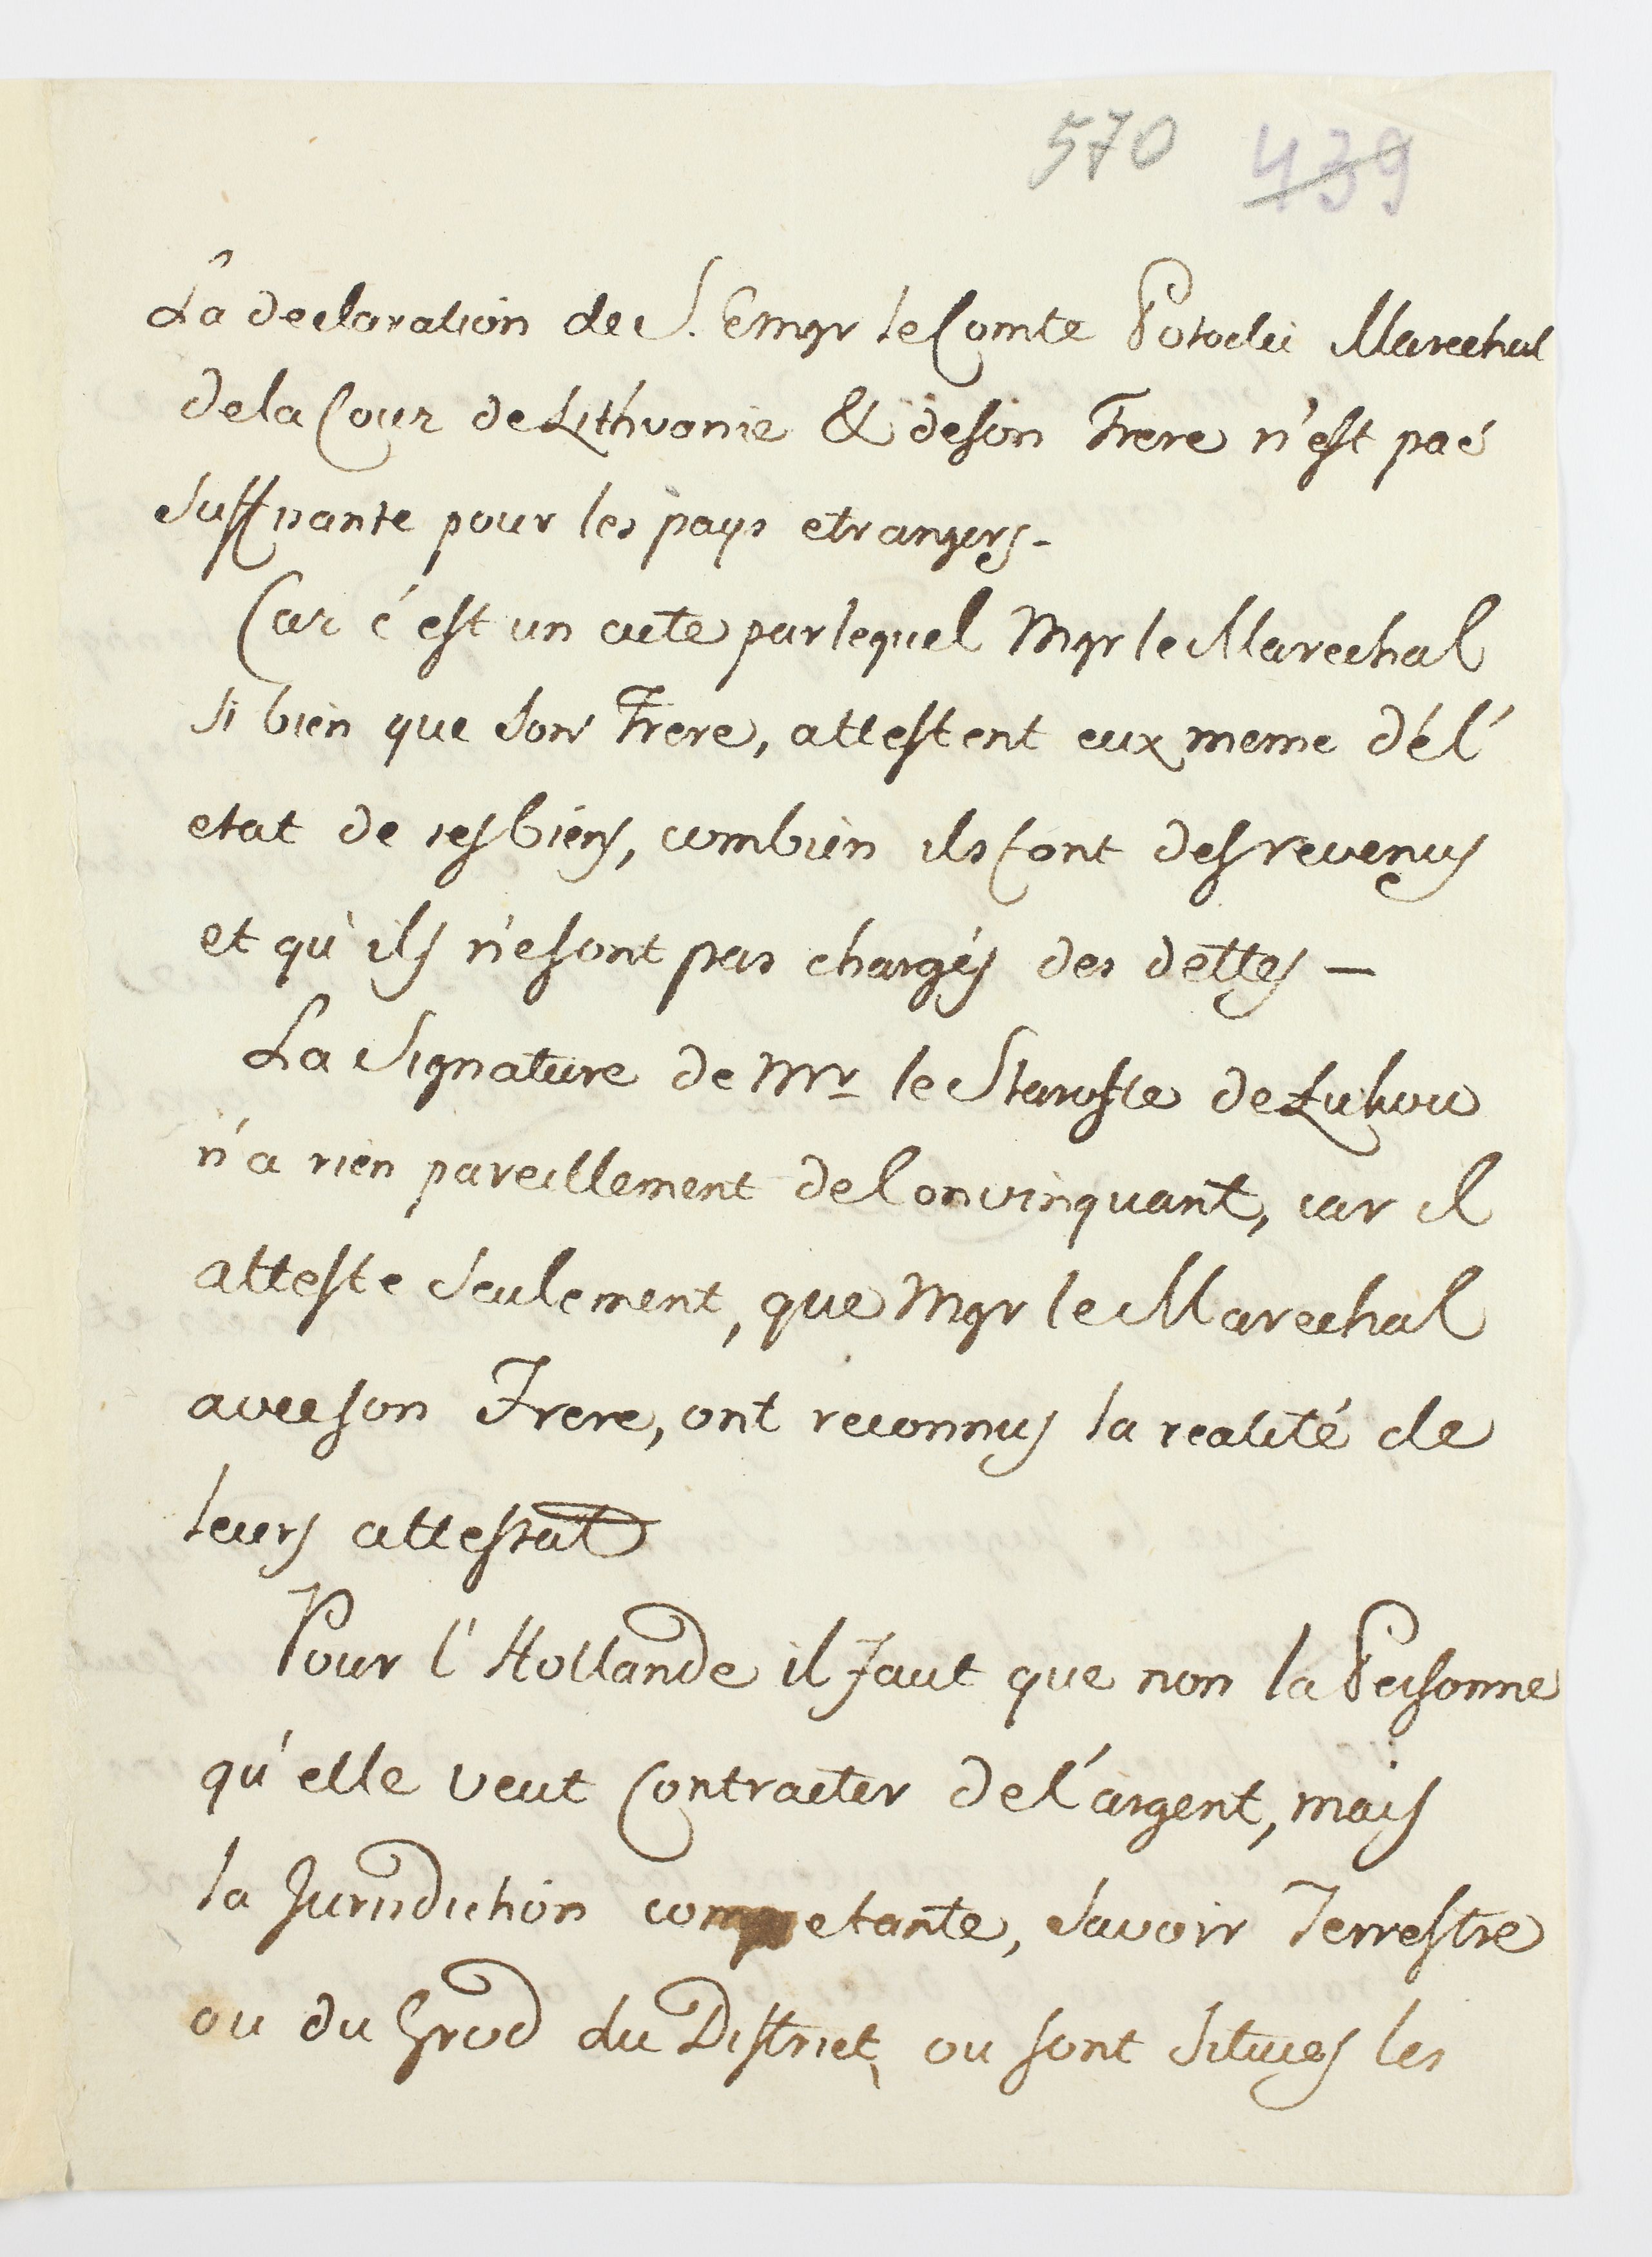 570 439
La declaration de S. Emgr le Comte Potocki Marechal
de la Cour de Lithvanie & de son Frere n'est pas
suffisante pour les pays etrangers -
Car c'est un acte par lequel Mgr le Marechal
si bien que son Frere, attestent eux meme de l'
etat de ses biens, combien ils font des revenus
et qu'ils ne sont pas chargés des dettes —
La Signature de Mr le Staroste de Łukow
n'a rien pareillement de Convinquant, car il
atteste seulement, que Mgr le Marechal
avec son Frere, ont reconnus la realité de
leurs attestat
Pour l'Hollande il faut que non la Personne
qu'elle veut Contracter de l'argent, mais
la Jurisdiction competante, savoir Terrestre
ou du Grod du District, ou sont situees les